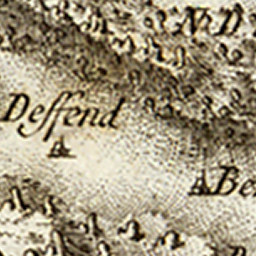 N. D
Deffend
Be